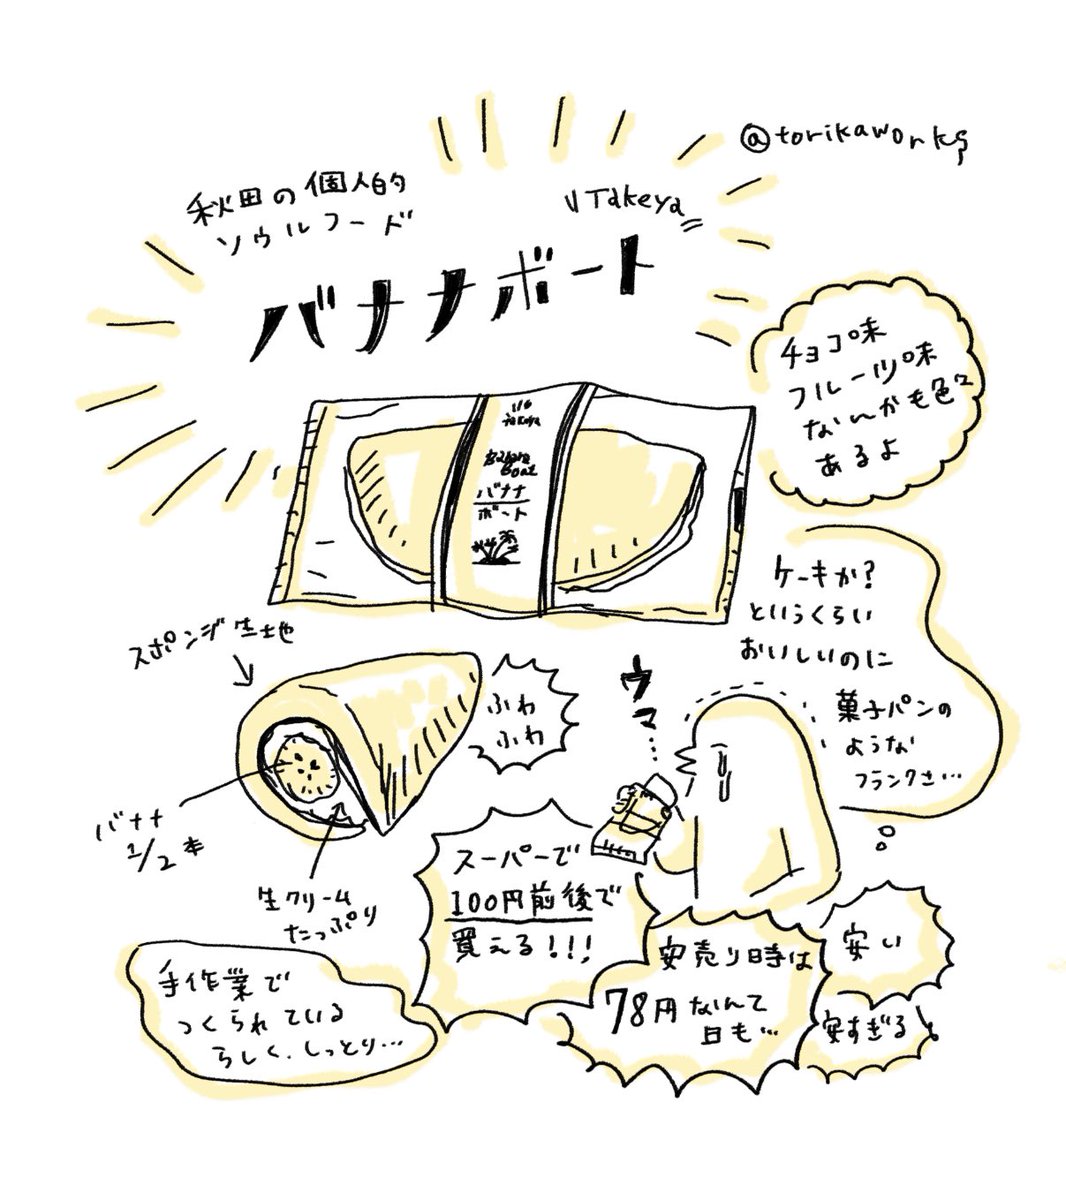 @torikaworks
秋田の個人的
ソウルフード
Takeya
バナナボート
チョコ味
フルーツ味
なんかも色々
あるよ
takeya
Banana
Boat
バナナ
ボート
ケーキか?
というくらい
おいしいのに
菓子パンの
ような
フランクさ…
スポンジ生地
ふわ
ふわ
ウマ……
バナナ
1/2本
生クリーム
たっぷり
スーパーで
100円前後で
買える!!!
安売り時は
78円なんて
日も…
安い
安すぎる
手作業で
つくられている
らしく、しっとり…